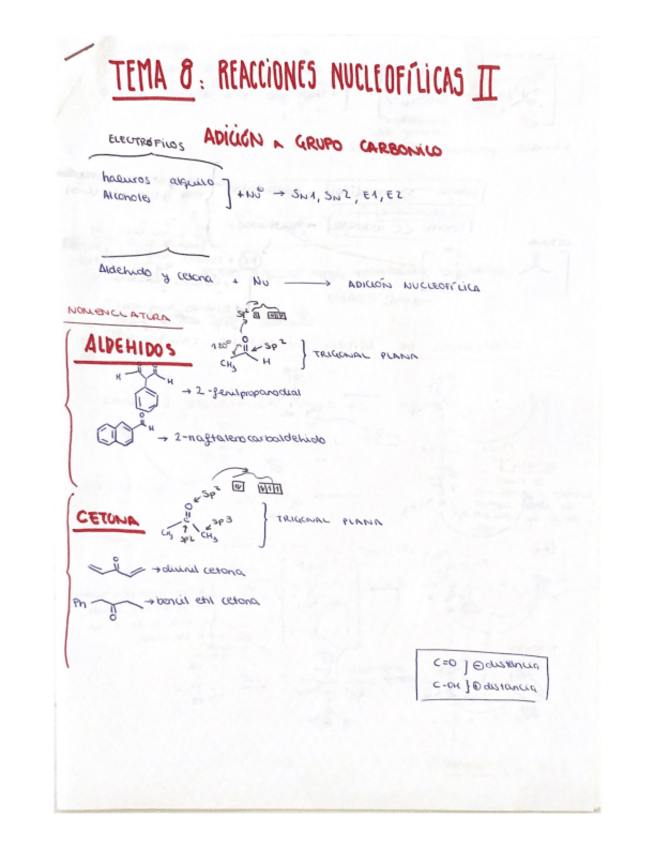 TEMA 8: REACCIONES NUCLEOFÍLICAS II
ELECTRÓFILOS ADICIÓN A GRUPO CARBONILO
haluros alquilo
Alcoholes
+ Nu⊖ → SN1, SN2, E1, E2
Aldehído y cetona + Nu → ADICIÓN NUCLEOFÍLICA
NOMENCLATURA
Sp²
ALDEHIDOS
120° O Sp²
CH₃ H
TRIGONAL PLANA
O O
H H
→ 2-fenilpropanodial
O
H
→ 2-naftalenocarbaldehido
Sp²
CETONA
O
C
sp3
CH₃ sp2 CH₃
TRIGONAL PLANA
O
→ divinil cetona
Ph → bencil etil cetona
O
C=O } ⊖ distancia
C-OH } ⊕ distancia